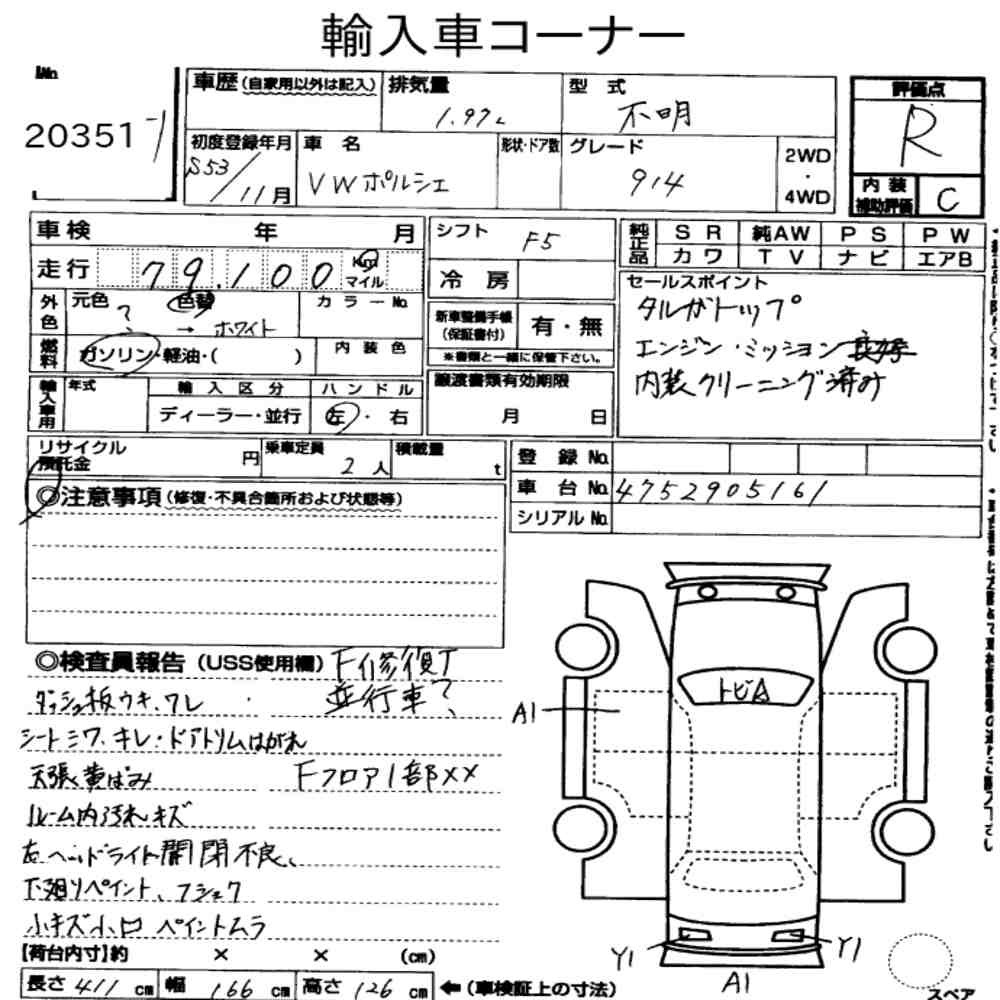 輸入車コーナー
No
20351
車歴(自家用以外は記入) 排気量 型式 評価点
1.97L 不明 R
初度登録年月 車名 形状・ドア数 グレード 2WD・4WD
S53/11月 VWポルシェ 914
内装補助評価 C
車検 年 月 シフト F5 純正品 SR 純AW PS PW
カワ TV ナビ エアB
走行 79,100 Km マイル 冷房 セールスポイント
外色 元色 ? 色替 → ホワイト カラーNo. 新車整備手帳(保証書付) 有・無 タルガトップ
※書類と一緒に保管下さい。
燃料 ガソリン・軽油・( ) 内装色 エンジン・ミッション良好
内装クリーニング済み
輸入車用 年式 輸入区分 ハンドル 譲渡書類有効期限
ディーラー・並行 左・右 月 日
リサイクル預託金 円 乗車定員 2人 積載量 t 登録No.
車台No. 4752905161
シリアルNo.
◎注意事項(修復・不具合箇所および状態等)
◎検査員報告(USS使用欄) F修復T
ダッシュ板ウキ、ワレ 並行車?
シートシワ、キレ・ドアトリムはがれ
天張黄ばみ Fフロア1部××
ルーム内汚れキズ
左ヘッドライト開閉不良、
下廻りペイント、フショク
小キズ小凹 ペイントムラ
トビA
A1
Y1 Y1
A1
スペア
【荷台内寸】約 × × (cm)
長さ 411 cm 幅 166 cm 高さ 126 cm ←(車検証上の寸法)